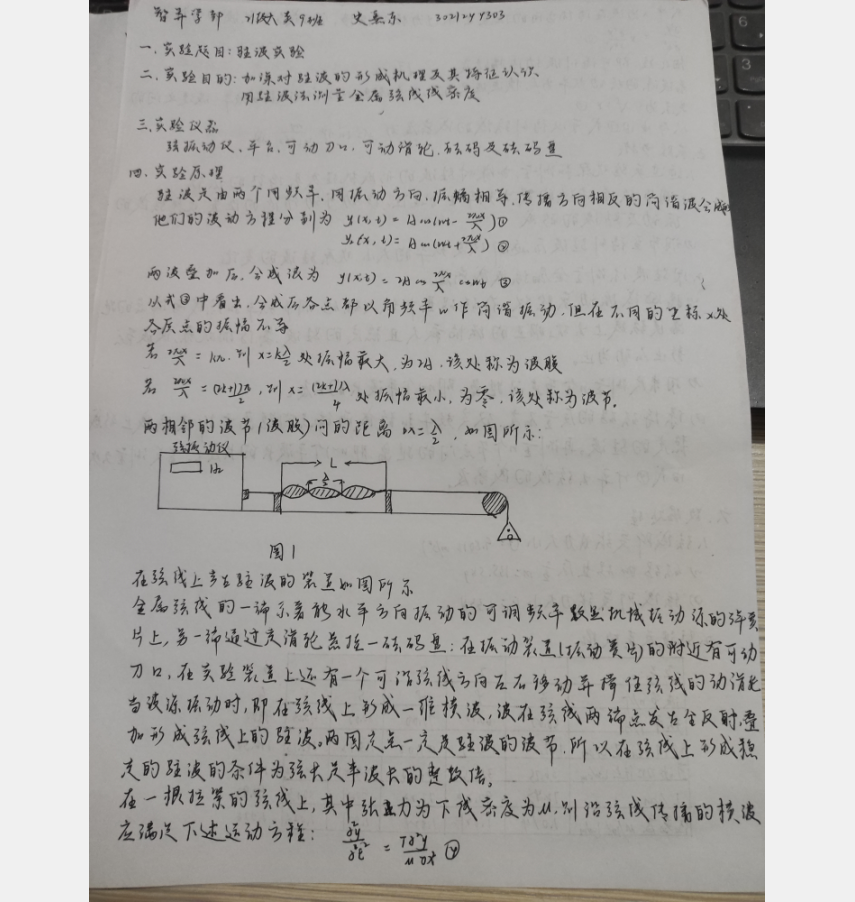 智算学部 21级大类9班 史嘉东 3021244303
一.实验题目:驻波实验
二.实验目的:加深对驻波的形成机理及其特征认识
用驻波法测量金属弦线线密度
三.实验仪器
弦振动仪、平台、可动刀口、可动滑轮、砝码及砝码盘
四.实验原理
驻波是由两个同频率、同振动方向、振幅相等、传播方向相反的简谐波合成
他们的波动方程分别为 y₁(x,t)=Acos(ωt-2πx/λ)①
y₂(x,t)=Acos(ωt+2πx/λ)②
两波叠加后,合成波为 y(x,t)=2Acos 2πx/λ cosωt ③
从式③中看出,合成后各点都以角频率ω作简谐振动,但在不同的坐标x处
各质点的振幅不等
若 2πx/λ=kπ,则x=kλ/2处振幅最大,为2A,该处称为波腹
若 2πx/λ=(2k+1)π/2,则x=(2k+1)λ/4处振幅最小,为零,该处称为波节.
两相邻的波节(波腹)间的距离 Δx=λ/2,如图所示:
弦振动仪
Hz
L
λ/2
图1
在弦线上产生驻波的装置如图所示
金属弦线的一端系着能水平方向振动的可调频率数显机械振动源的弹簧
片上,另一端通过定滑轮悬挂一砝码盘;在振动装置(振动簧片)的附近有可动
刀口,在实验装置上还有一个可沿弦线方向左右移动并撑住弦线的动滑轮
当波源振动时,即在弦线上形成一维横波,波在弦线两端点发生全反射,叠
加形成弦线上的驻波。两固定点一定是驻波的波节,所以在弦线上形成稳
定的驻波的条件为弦长是半波长的整数倍。
在一根拉紧的弦线上,其中张力为T线密度为μ,则沿弦线传播的横波
应满足下述运动方程: ∂²y/∂t²=T∂²y/μ∂x² ④